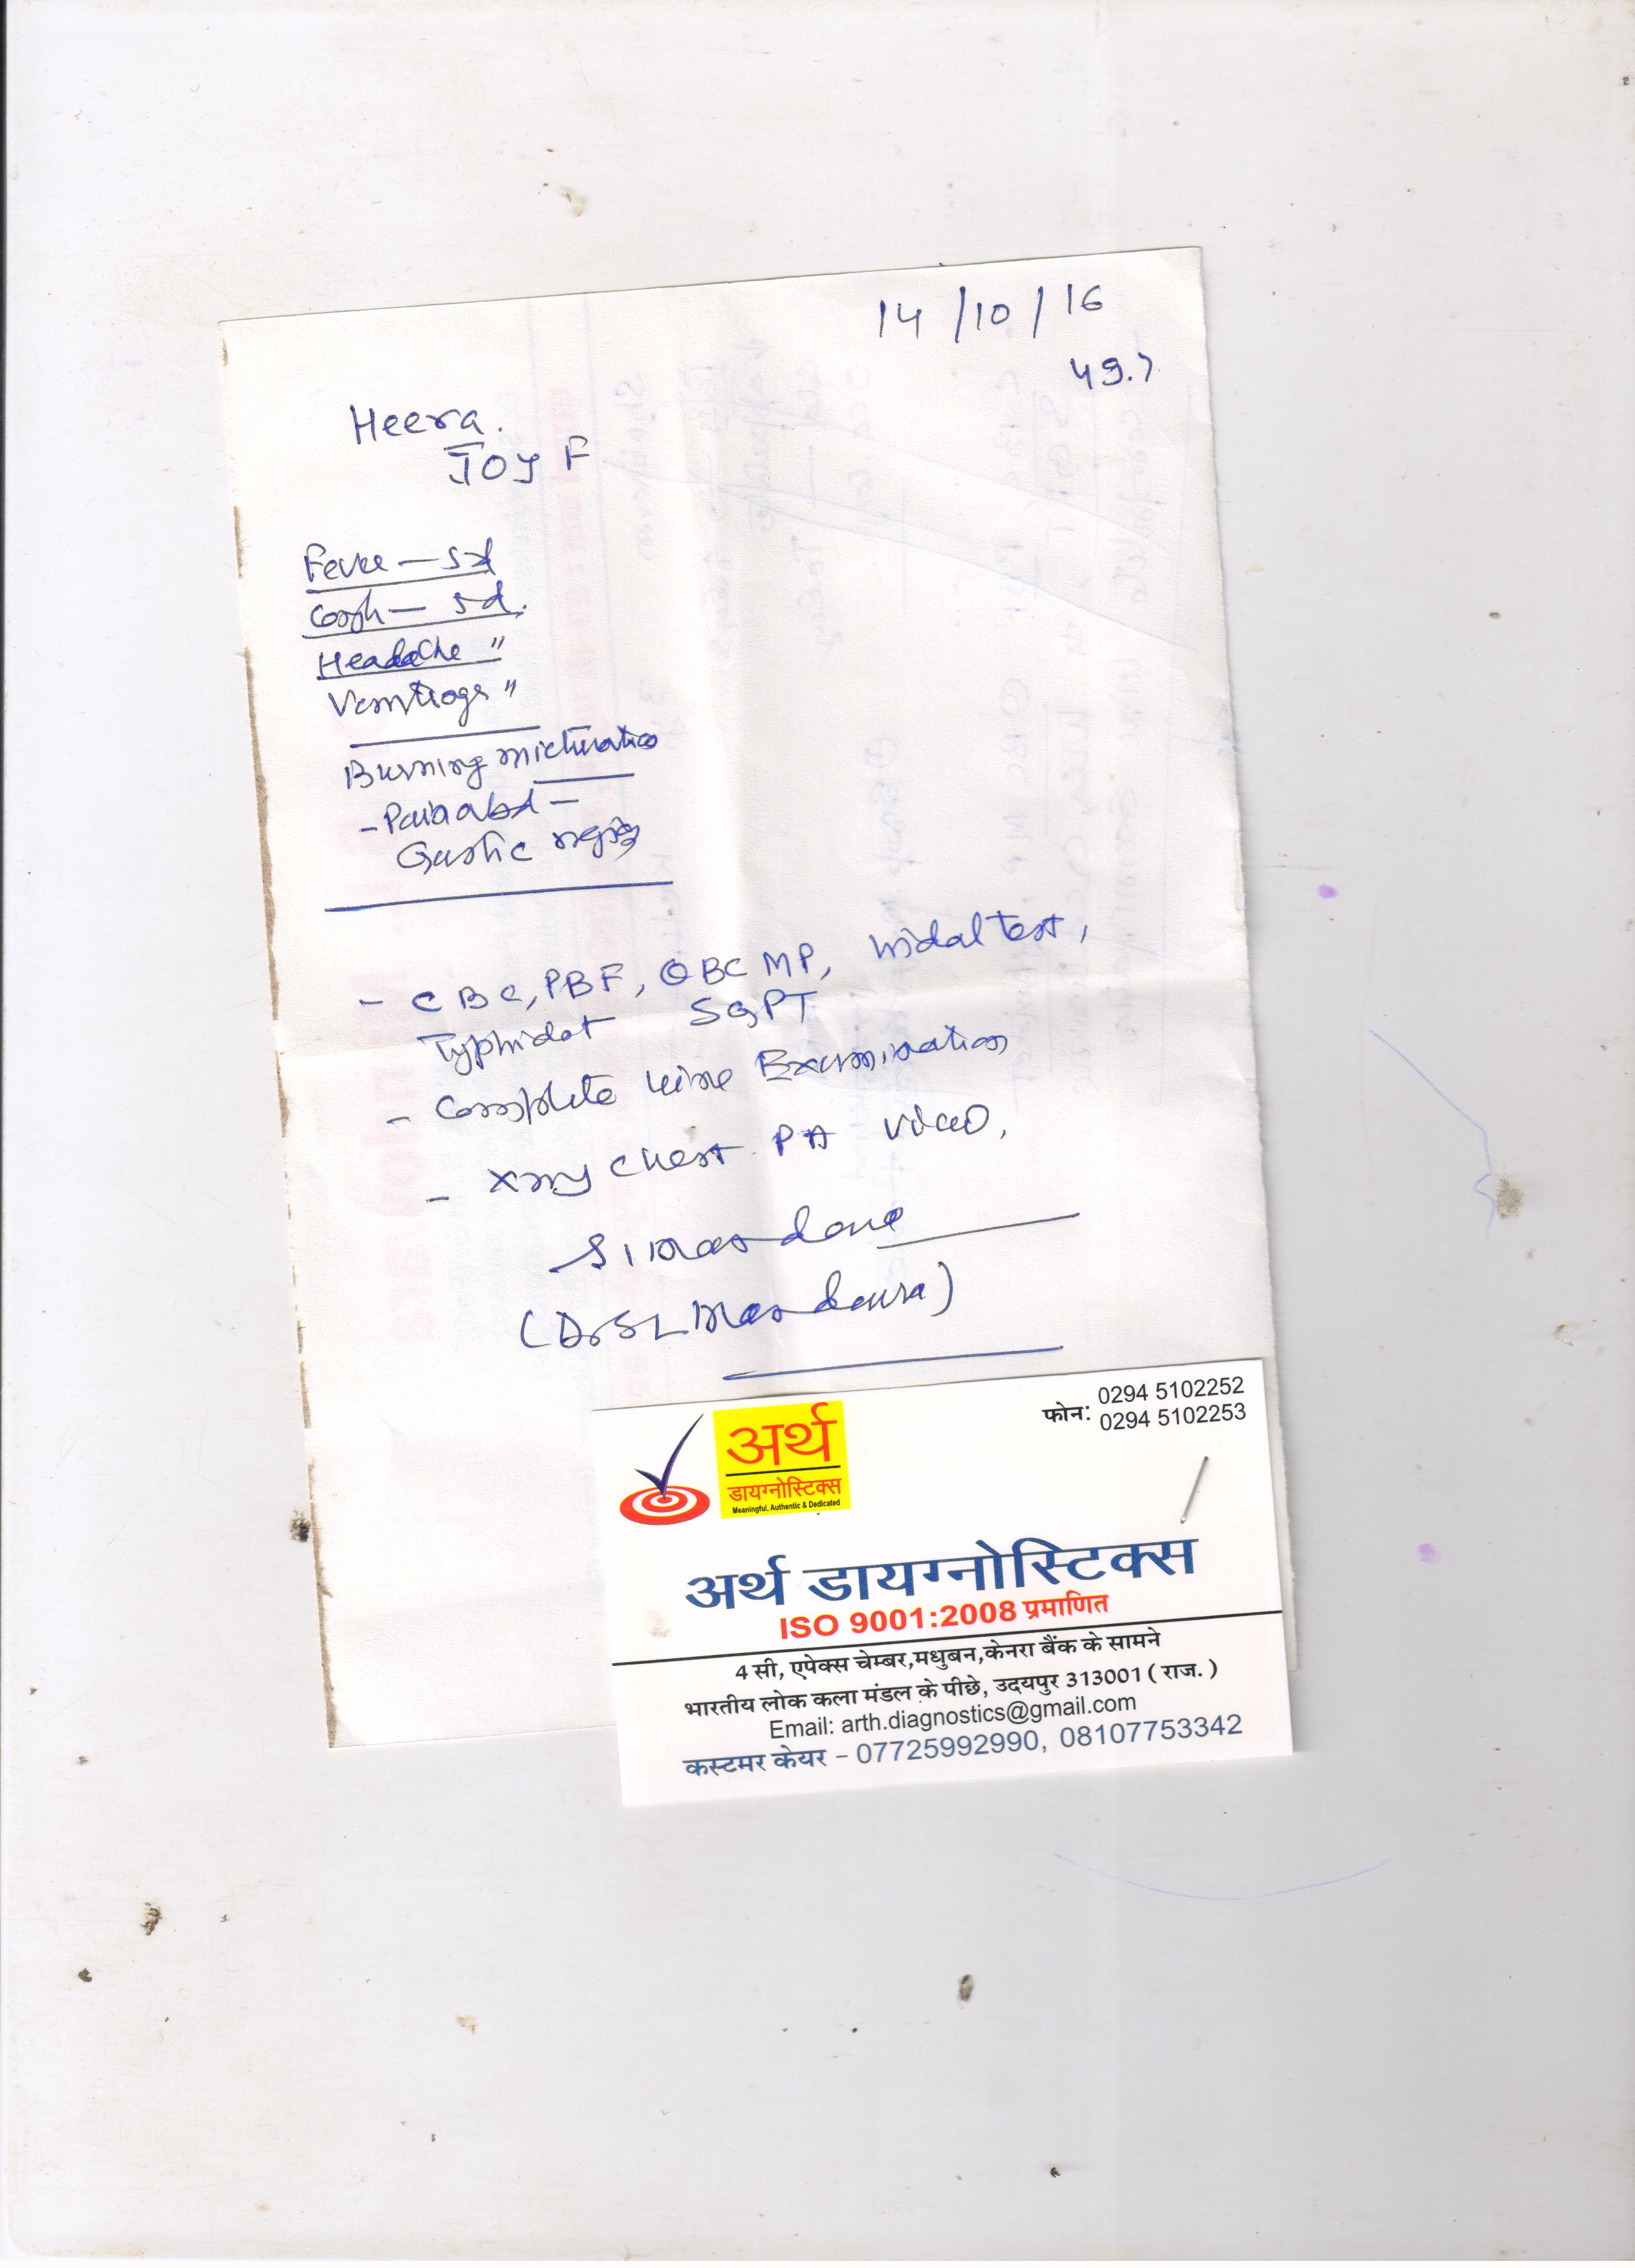 14/10/16
Heera.
F
Fever - 5d
Cough - 5d.
Headache "
"
Burning micturation
- Pain abd -
Gastric region
- CBC, PBF, QBC MP, Widal test,
Typhidot SGPT
- Complete urine Examination
- Xray Chest PA view.
फोन: 0294 5102252
0294 5102253
अर्थ
डायग्नोस्टिक्स
Meaningful, Authentic & Dedicated
अर्थ डायग्नोस्टिक्स
ISO 9001:2008 प्रमाणित
4 सी, एपेक्स चेम्बर,मधुबन,केनरा बैंक के सामने
भारतीय लोक कला मंडल के पीछे, उदयपुर 313001 ( राज. )
Email: arth.diagnostics@gmail.com
कस्टमर केयर - 07725992990, 08107753342